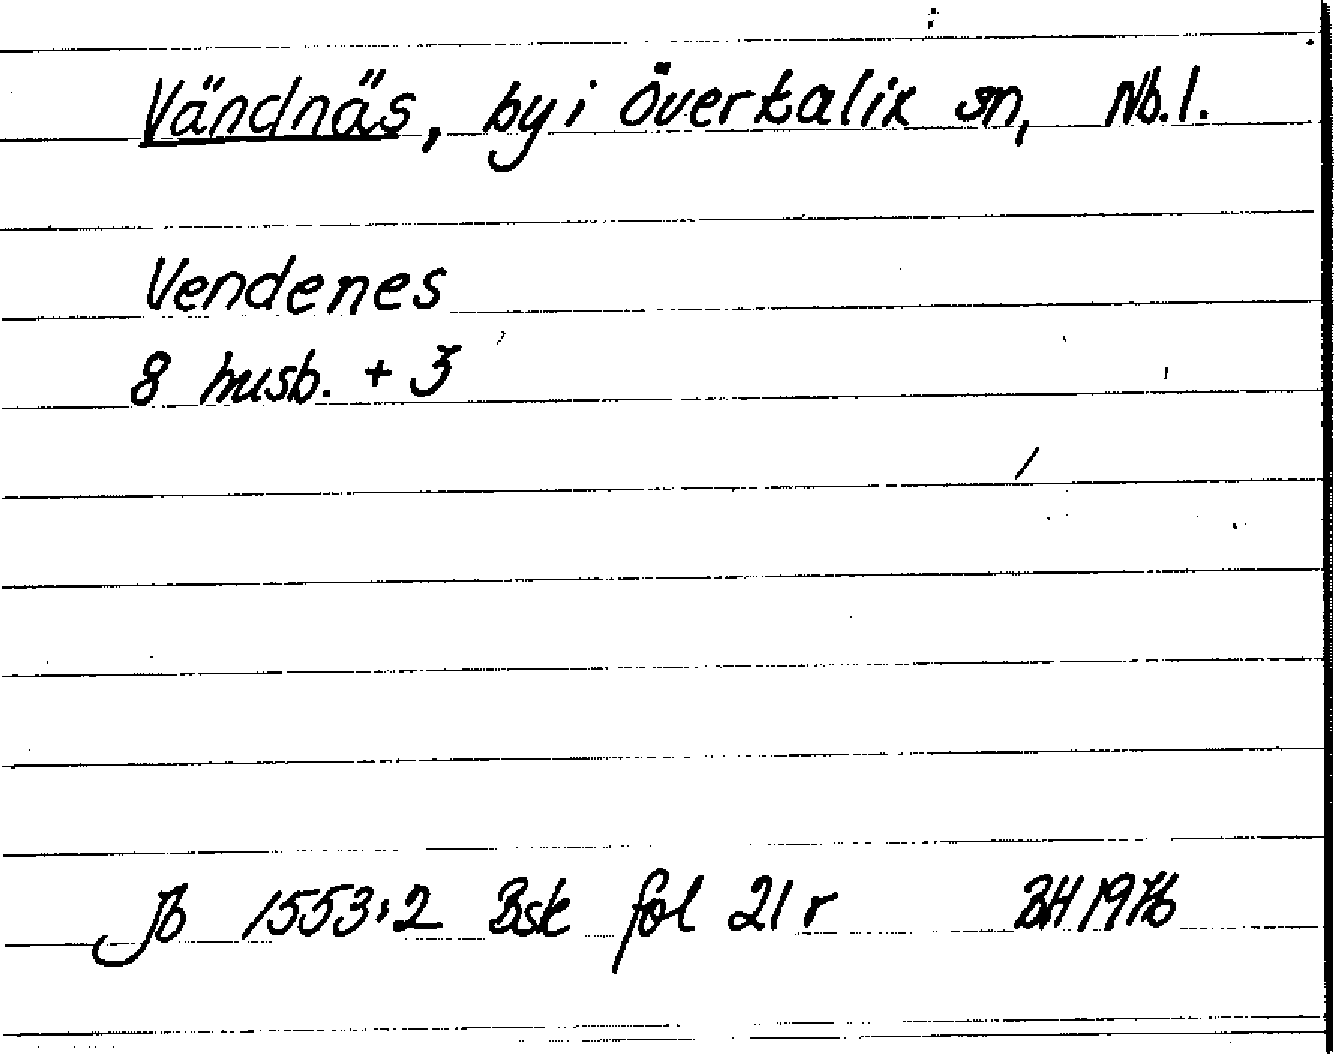 Vändnäs, by i Överkalix sn, Nb. l.
Vendenes
8 husb. + 3
Jb 1553:2 Bsk fol 21 r BH 1976